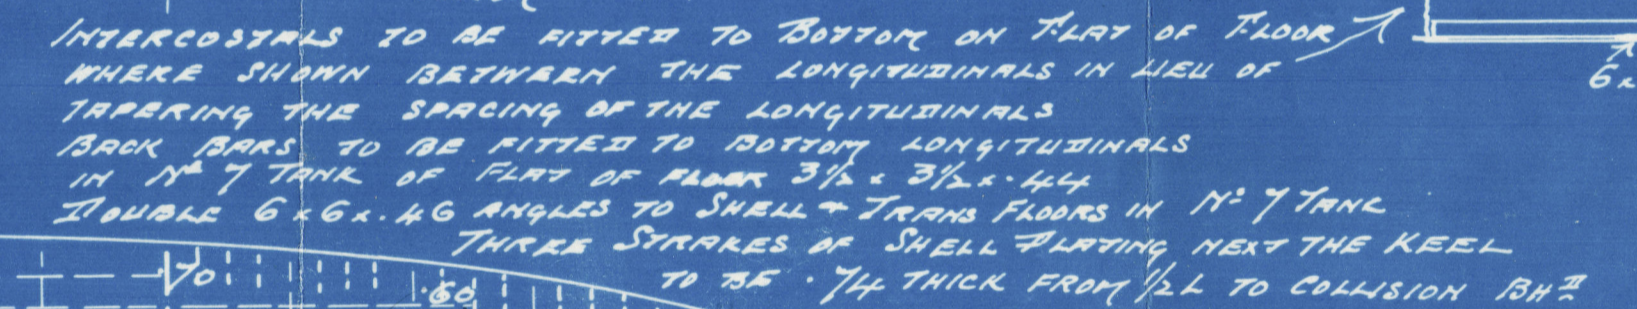 INTERCOSTALS TO BE FITTED TO BOTTOM ON FLAT OF FLOOR
WHERE SHOWN BETWEEN THE LONGITUDINALS IN LIEU OF
TAPERING THE SPACING OF THE LONGITUDINALS
BACK BARS TO BE FITTED TO BOTTOM LONGITUDINALS
IN Nº 7 TANK OF FLAT OF FLOOR 3½ x 3½ x .44
DOUBLE 6 x 6 x .46 ANGLES TO SHELL & TRANS FLOORS IN Nº 7 TANK
THREE STRAKES OF SHELL PLATING NEXT THE KEEL
TO BE .74 THICK FROM ½ L TO COLLISION BHD
6 x
.70
.60